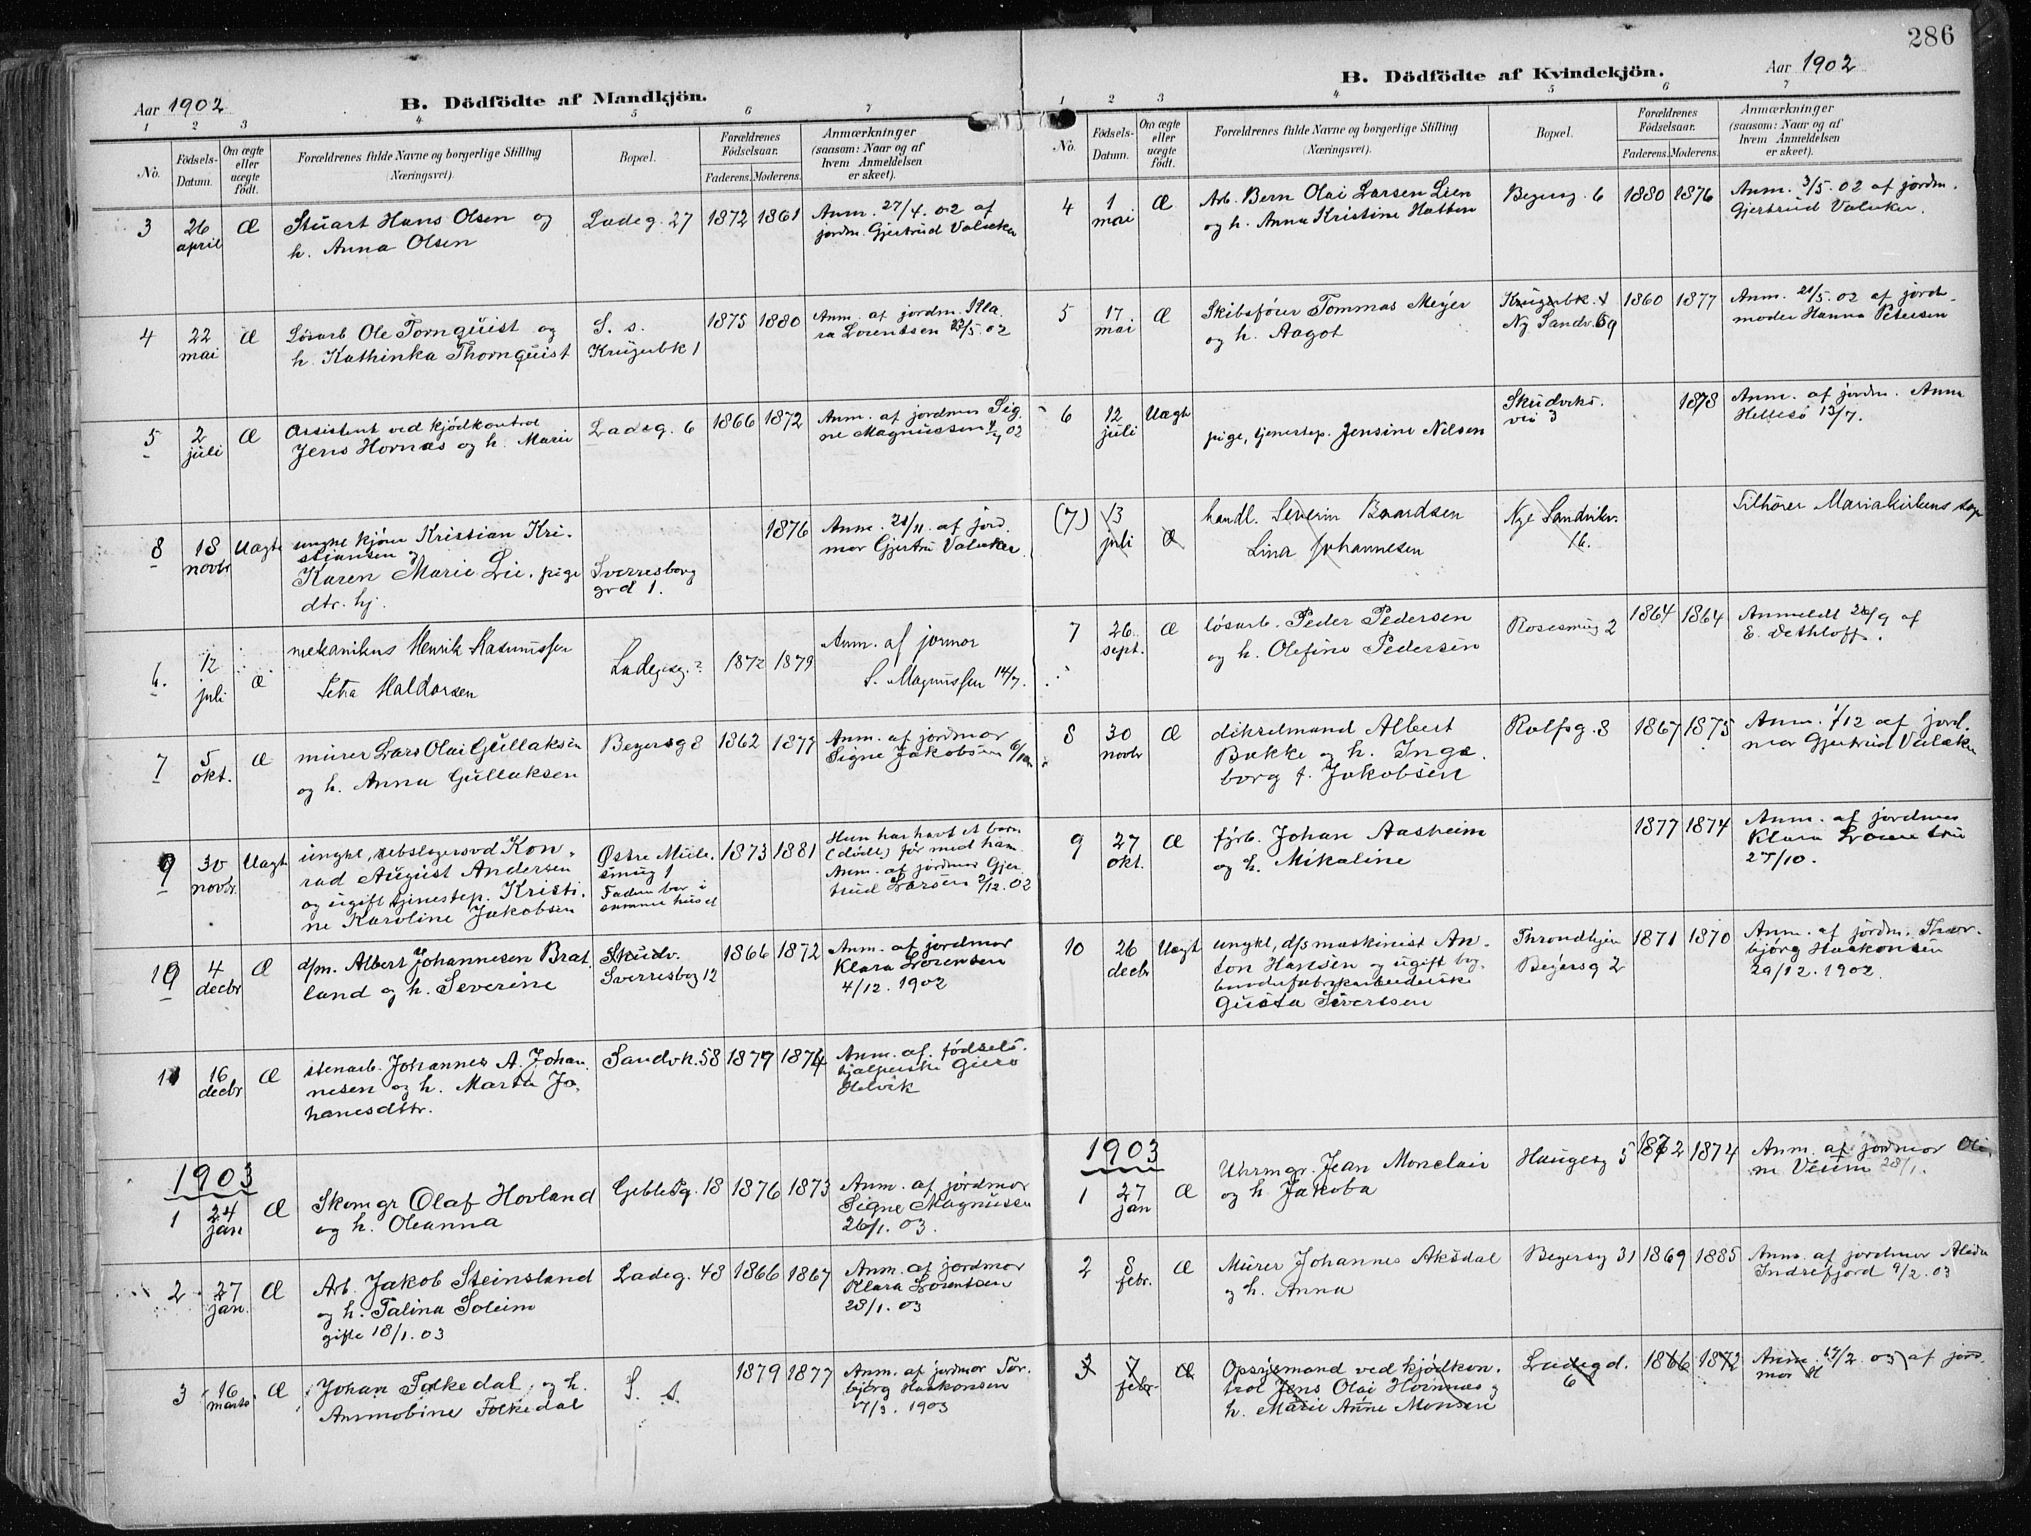 Aar 1902
B. Dödfödte af Mandkjön.
1 2 3 4 5 6 7
No.
Födsels-Datum.
Om ægte eller uægte födt.
Forældrenes fulde Navne og borgerlige Stilling (Næringsvei).
Bopæl.
Forældrenes Födselsaar.
Faderens. Moderens.
Anmærkninger (saasom: Naar og af hvem Anmeldelsen er skeet).
3 26 april Æ
Stuart Hans Olsen og
h. Anna Olsen
Ladeg. 27 1872 1861
Anm. 27/4. 02 af
jordm. Gjertrud Valaker
4 22 mai Æ
Løsarb Ole Tornquist og
h. Kathinka Thornquist
S. s.
Krügerbk 1
1875 1880
Anm. af jordm. Kla
ra Lorentsen 23/5. 02
5 2 juli Æ
Assistent ved kjødkontrol
Jens Hornæs og h. Marie
Ladeg. 6 1866 1872
Anm. af jordmor Sig
ne Magnussen 02
8 18 novbr Uægte
ungkl kjører Kristian Kri
stiansen og
Karen Marie Lie. pige
dtr. hj.
Sverresborg
grd 1.
1876
Anm. 21/11. af jord.
mor Gjertru Valaker
6. 12 juli Æ
mekanikus Henrik Rasmussen
Petra Haldorsen
Ladegsg. 1872 1879
Anm. af jormor
S. Magnussen 14/7.
7 5 okt. Æ
murer Lars Olai Gullaksen
og h. Anna Gullaksen
Beyersg 8 1862 1877
Anm. af jordmor
Signe Jakobsen 6/10
9 30 novbr. Uægt
ungkl, rebslagersvd Kon
rad August Andersen
og ugift tjenestep. Kristi
ne Karoline Jakobsen
Østre Mule
smug 1
Faderen bor i
samme huset
1873 1881
Hun har havt et barn
(dødt) før med ham
Anm. af jordmor Gjer
trud Larsen 2/12. 02
10 4 decbr Æ
d/m. Albert Johannesen Brat
land og h. Severine
Skudv.
Sverresbog 12
1866 1872
Anm. af jordmor
Klara Lorensen
4/12. 1902
11 16 decbr Æ
stenarb. Johannes A. Johan
nesen og h. Marta Jo
hanesdttr.
Sandvk. 58 1877 1874
Anm. af. fødsels
hjælperske Guro
Helvik
1903
1 24 jan Æ
Skomgr Olaf Hovland
og h. Oleanna
Geblesg. 18 1876 1873
Anm. af jordmor
Signe Magnussen
26/1. 03.
2 27 jan. Æ
Arb. Jakob Steinsland
og h. Talina Soleim
gifte 18/1. 03
Ladeg. 48 1866 1867
Anm. af jordmor
Klara Lorentsen
28/1. 03
3 16 marts Æ
Johan Folkedal, og h.
Annmobine Folkedal
S. s. 1879 1877
Anm. af jordmor Tor
björg Haakonsen
17/3. 1903
286
B. Dödfödte af Kvindekjön.
Aar 1902
1 2 3 4 5 6 7
No.
Födsels-Datum.
Om ægte eller uægte födt.
Forældrenes fulde Navne og borgerlige Stilling (Næringsvei).
Bopæl.
Forældrenes Födselsaar.
Faderens. Moderens.
Anmærkninger (saasom: Naar og af hvem Anmeldelsen er skeet).
4 1 mai Æ
Arb. Bern Olai Larsen Lien
og h. Anna Kristine Hatten
Beyersg. 6 1880 1876
Anm. 3/5. 02 af jordm.
Gjertrud Valaker.
5 17 mai Æ
Skibsfører Tommas Meyer
og h. Aagot
Krügerbk. 1
Ny Sandv. 69
1860 1877
Anm. 21/5. 02 af jord
moder Hanna Petersen
6 12 juli Uægt
pige, tjenestep. Jensine Nilsen
Skudviks.
vei 3
1878
Anm. af jordm. Anne
Hellesö 13/7.
(7) 13 juli Æ
handl. Severin Baardsen
Lina Johannesen
Nye Sandvikv.
16.
Tilhører Mariakirkens sogn
7 26 sept. Æ
løsarb. Peder Pedersen
og h. Olefine Pedersen
Rosesmug 2 1864 1864
Anmeldt 26/9 af
E. Dethloff.
8 30 novbr Æ
dikselmand Albert
Bakke og h. Inge
borg f. Jakobsen
Rolfsg. 8 1867 1875
Anm. 1/12 af jord
mor Gjertrud Valaker
9 27 okt. Æ
fyrb. Johan Aasheim
og h. Mikaline
1877 1874
Anm. af jordmor
Klara
27/10.
10 26 decbr Uægt
ungkl, d/s maskinist An
ton Hansen og ugift
Gusta Sivertsen
Throndhjem
Beyersg 2
1871 1870
Anm. af jordm. Thor
bjørg Haakonsen
29/12. 1902.
1903
1 27 jan Æ
Uhrmgr. Jean Monclair
og h. Jakoba
Haugesg 5 1872 1874
Anm. af jordmor Oli
ne Veum 28/1.
2 8 febr. Æ
Murer Johannes Aksdal
og h. Anna
Beyersg 31 1869 1885
Anm. af jordmor Alida
Indrefjord 9/2. 03
3 7 febr. Æ
Opsysmand ved kjødkon
trol Jens Olai Hornnæs og
h. Marie Anne Monsen
Ladegd.
6
1866 1872
Anm. 12/2. 03 af jord
mor